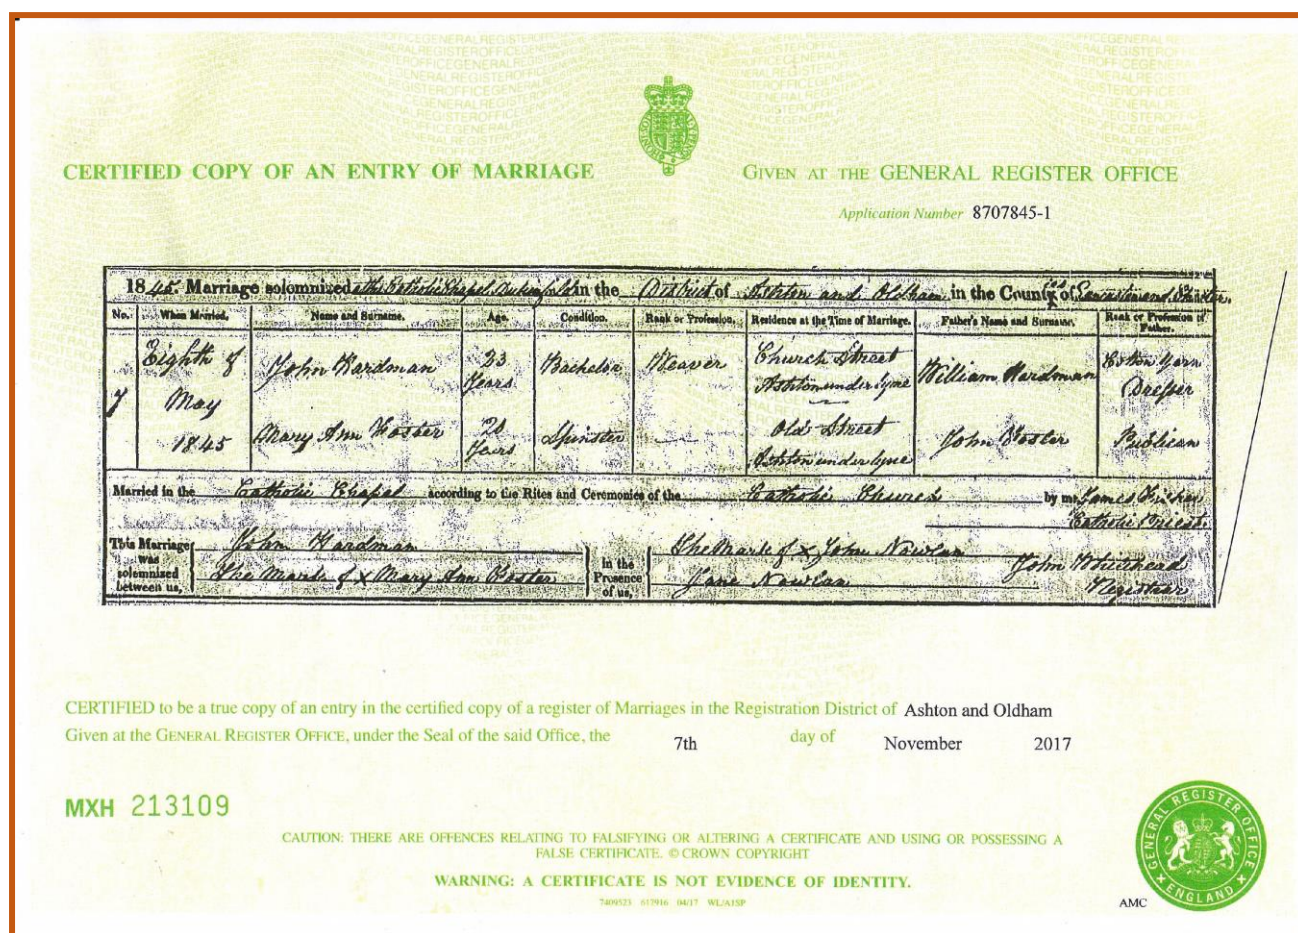 CERTIFIED COPY OF AN ENTRY OF MARRIAGE
GIVEN AT THE GENERAL REGISTER OFFICE
Application Number 8707845-1
1845 Marriage solemnized at the Catholic Chapel Dukinfield in the District of Ashton and Oldham in the Counties of Lancaster and Chester.
No. When Married. Name and Surname. Age. Condition. Rank or Profession. Residence at the Time of Marriage. Father's Name and Surname. Rank or Profession of Father.
7 Eighth of May 1845
John Hardman 23 Years Bachelor Weaver Church Street Ashton under lyne William Hardman Cotton Yarn Dresser
Mary Ann Foster 20 Years Spinster Old Street Ashton under lyne John Foster Publican
Married in the Catholic Chapel according to the Rites and Ceremonies of the Catholic Church by me, James
Catholic Priest
This Marriage was solemnized between us,
John Hardman
The Mark of x Mary Ann Foster
in the Presence of us,
The Mark of x John Nowlan
Jane Nowlan
John Whitehead
Registrar
CERTIFIED to be a true copy of an entry in the certified copy of a register of Marriages in the Registration District of Ashton and Oldham
Given at the GENERAL REGISTER OFFICE, under the Seal of the said Office, the 7th day of November 2017
MXH 213109
CAUTION: THERE ARE OFFENCES RELATING TO FALSIFYING OR ALTERING A CERTIFICATE AND USING OR POSSESSING A
FALSE CERTIFICATE. © CROWN COPYRIGHT
WARNING: A CERTIFICATE IS NOT EVIDENCE OF IDENTITY.
7409523 617916 04/17 WL/A1SP
AMC
GENERAL REGISTER OFFICE
ENGLAND